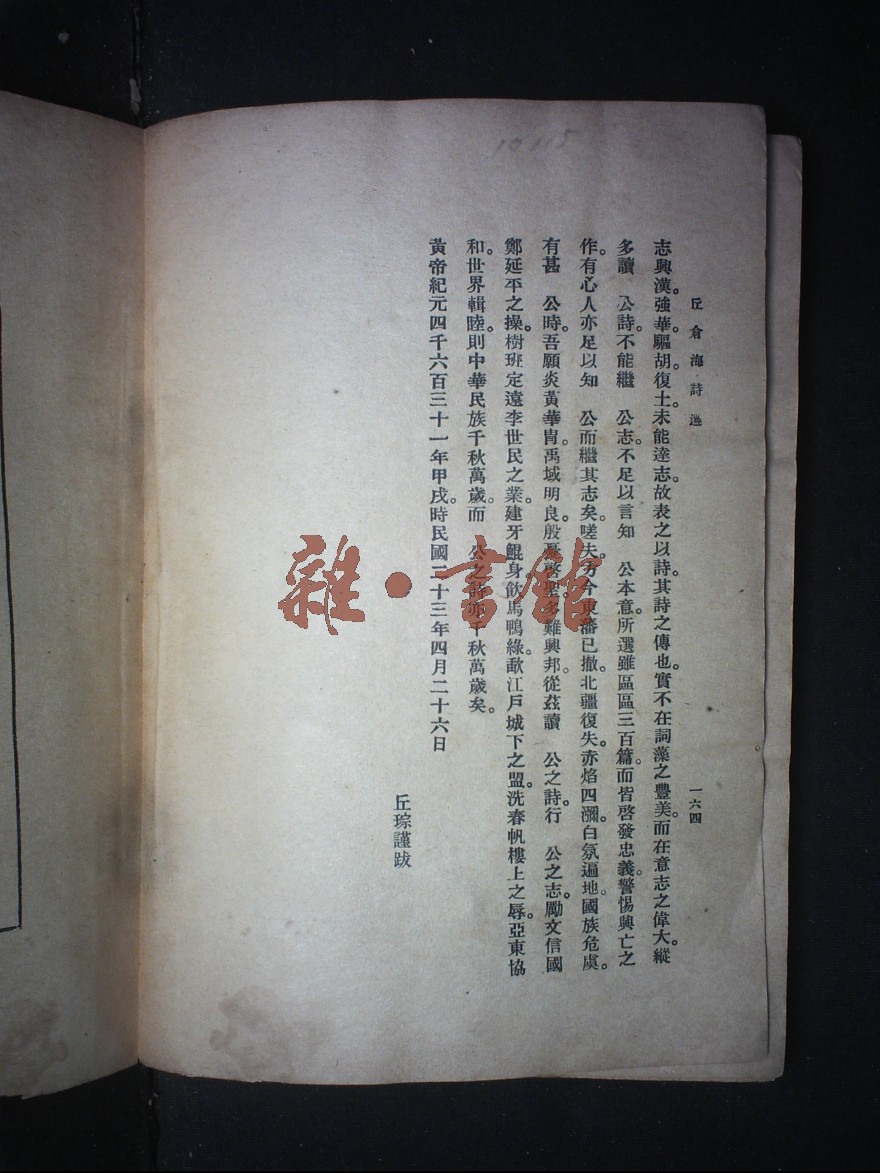 10115
丘倉海詩選
一六四
志興漢。強華。驅胡。復土。未能達志。故表之以詩。其詩之傳也。實不在詞藻之豐美。而在意志之偉大。縱
多讀 公詩。不能繼 公志。不足以言知 公本意。所選雖區區三百篇。而皆啓發忠義。警惕興亡之
作。有心人亦足以知 公而繼其志矣。嗟夫。方今東藩已撤。北疆復失。赤焰四瀰。白氛遍地。國族危虞。
有甚 公時。吾願炎黃華胄。禹域明良。殷憂啓聖。多難興邦。從茲讀 公之詩。行 公之志。勵文信國
鄭延平之操。樹班定遠李世民之業。建牙鯤身。飲馬鴨綠。歃江戶城下之盟。洗春帆樓上之辱。亞東協
和。世界輯睦。則中華民族千秋萬歲。而 公之詩亦千秋萬歲矣。
黃帝紀元四千六百三十一年甲戌。時民國二十三年四月二十六日
丘琮謹跋
雜·書館